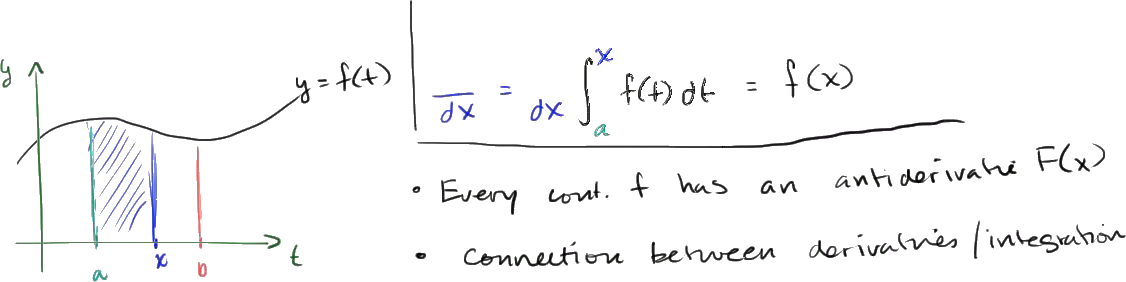 y
y = f(t)
a x b t
‾/dx = dx ∫ₐˣ f(t) dt = f(x)
• Every cont. f has an antiderivative F(x)
• Connection between derivatives / integration